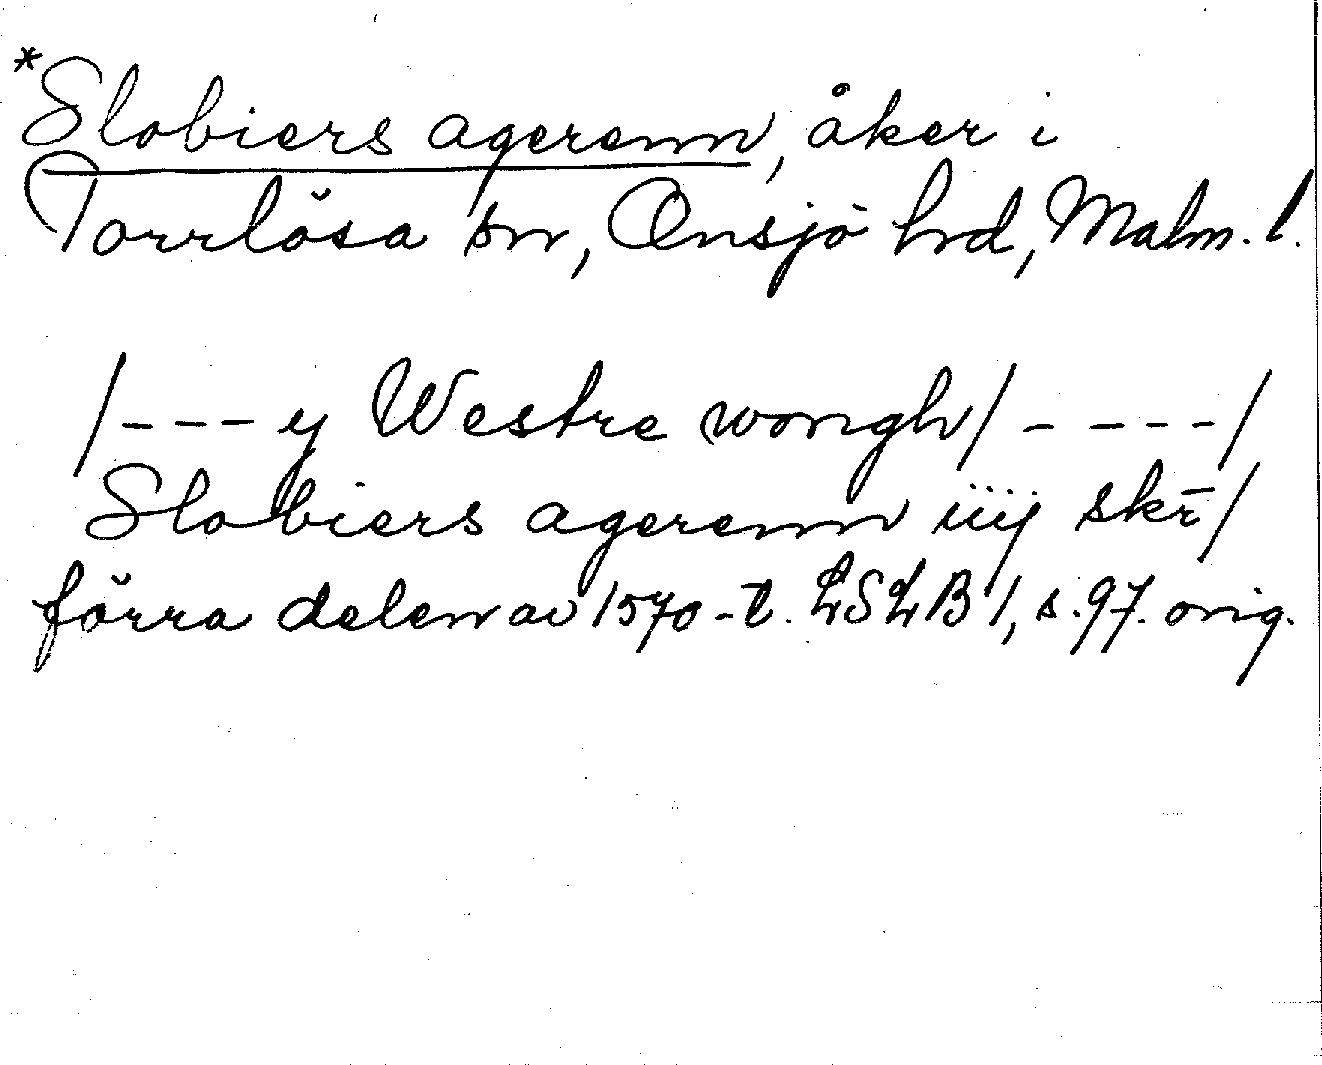 *Slobiers agerenn, åker i
Torrlösa sn, Onsjö hd, Malm. l.
/---y Westre wongh/ ----/
Slobiers agerenn iiij skr̄/
förra delen av 1570-t. LSLB 1, s. 97. orig.